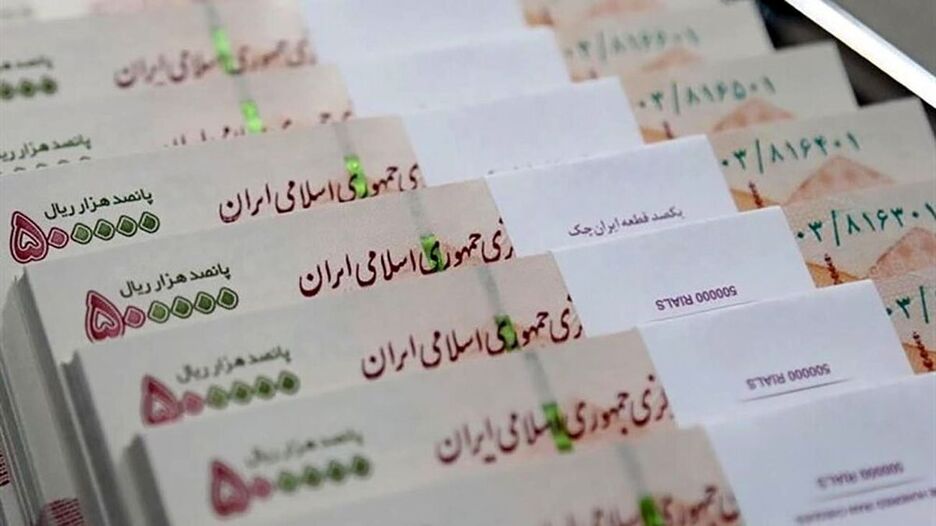 پانصد هزار ریال
جمهوری اسلامی ایران
۸۱۶۶۰۱
۰۳/۸۱۶۵۰۱
جمهوری اسلامی ایران
پانصد هزار ریال
۵۰۰۰۰۰
جمهوری اسلامی ایران
۰۳/۸۱۶۴۰۱
پانصد هزار ریال
۵۰۰۰۰۰
جمهوری اسلامی ایران
یکصد قطعه ایران چک
۰۳/۸۱۶۳۰۱
پانصد هزار ریال
۵۰۰۰۰۰
جمهوری اسلامی ایران
500000 RIALS
پانصد هزار ریال
۵۰۰۰۰۰
جمهوری اسلامی ایران
500000 RIALS
500000 RIALS